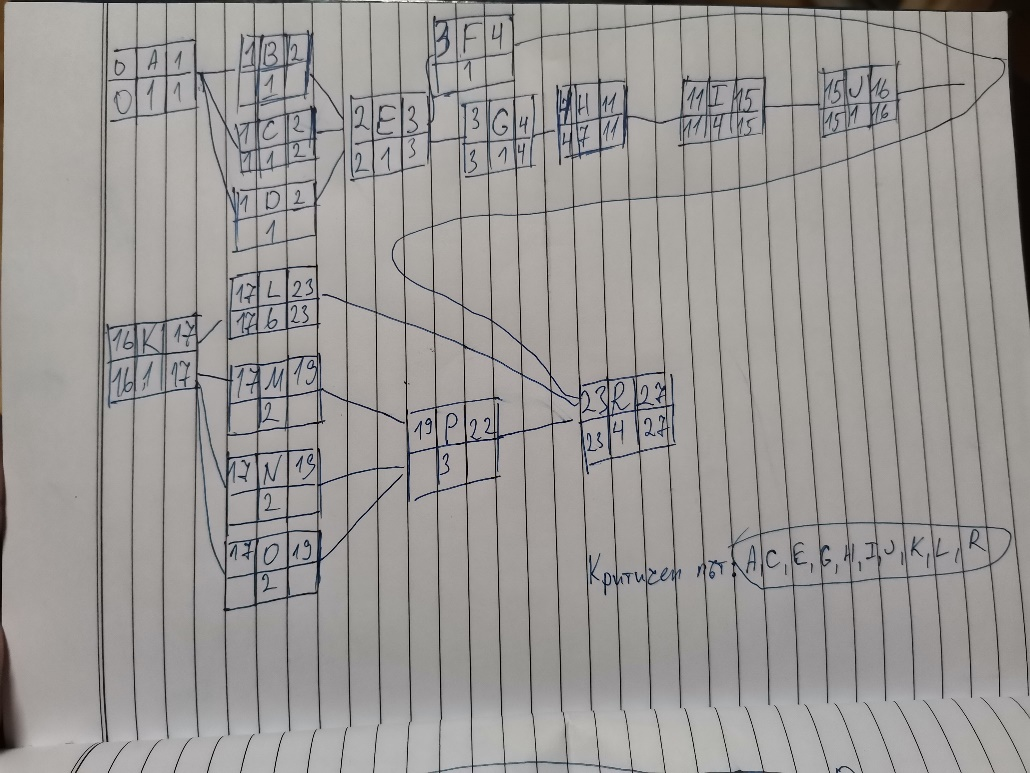 0 A 1
0 1 1
1 B 2
1
1 C 2
1 1 2
1 D 2
1
2 E 3
2 1 3
3 F 4
1
3 G 4
3 1 4
4 H 11
4 7 11
11 I 15
11 4 15
15 J 16
15 1 16
16 K 17
16 1 17
17 L 23
17 6 23
17 M 19
2
17 N 19
2
17 O 19
2
19 P 22
3
23 R 27
23 4 27
Критичен път: A, C, E, G, H, I, J, K, L, R